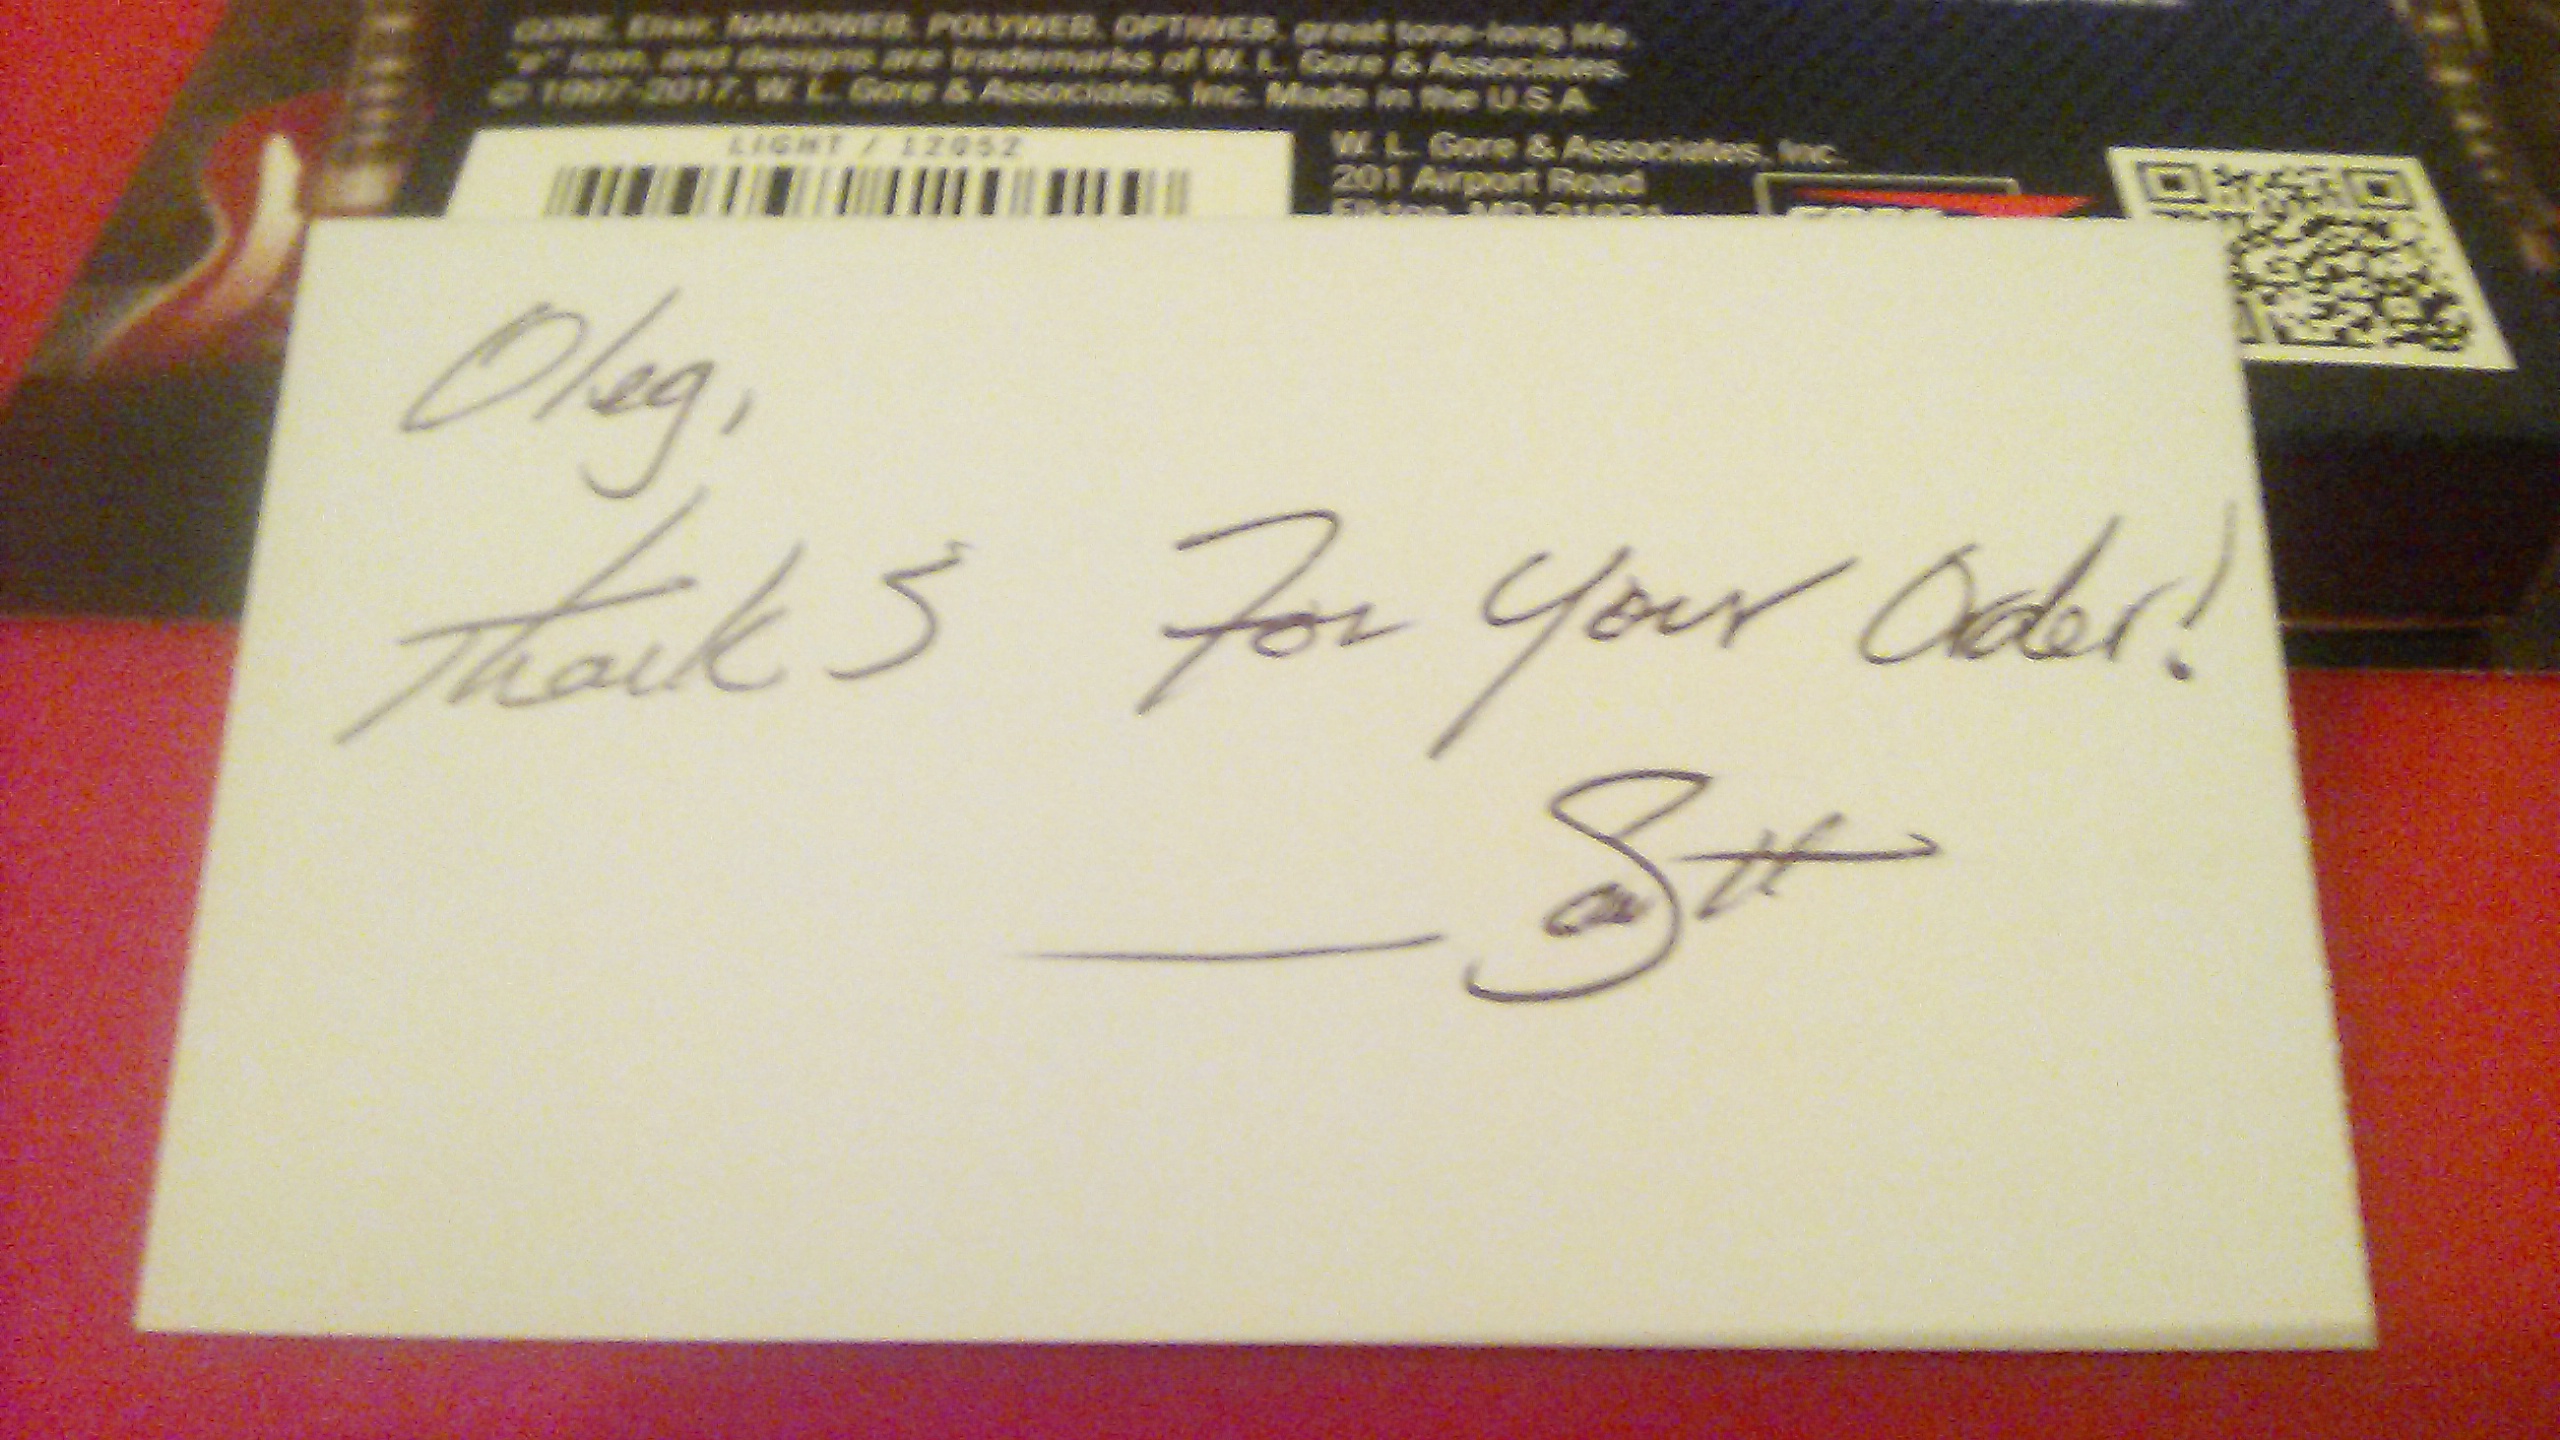 GORE, Elixir, NANOWEB, POLYWEB, OPTIWEB, great tone-long life,
"e" icon, and designs are trademarks of W. L. Gore & Associates.
© 1997-2017, W. L. Gore & Associates, Inc. Made in the U.S.A.
LIGHT / 12052
W. L. Gore & Associates, Inc.
201 Airport Road
Oleg,
Thanks For Your Order!